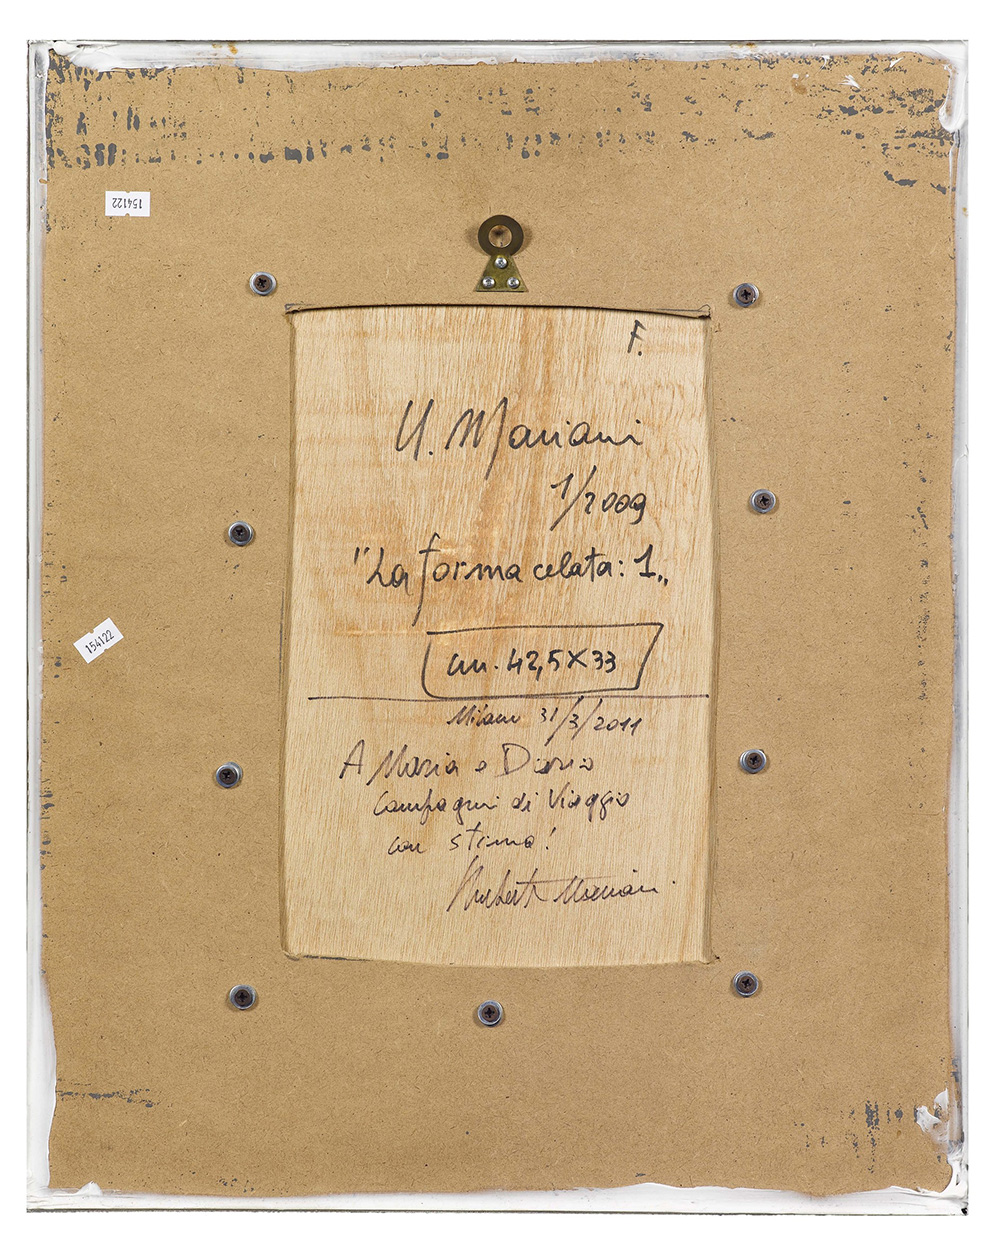 154122
F.
U. Mariani
1/2009
"La forma celata: 1„
cm. 42,5X33
154122
Milano 31/3/2011
A Maria e Dario
Compagni di Viaggio
con stima!
Umberto Mariani